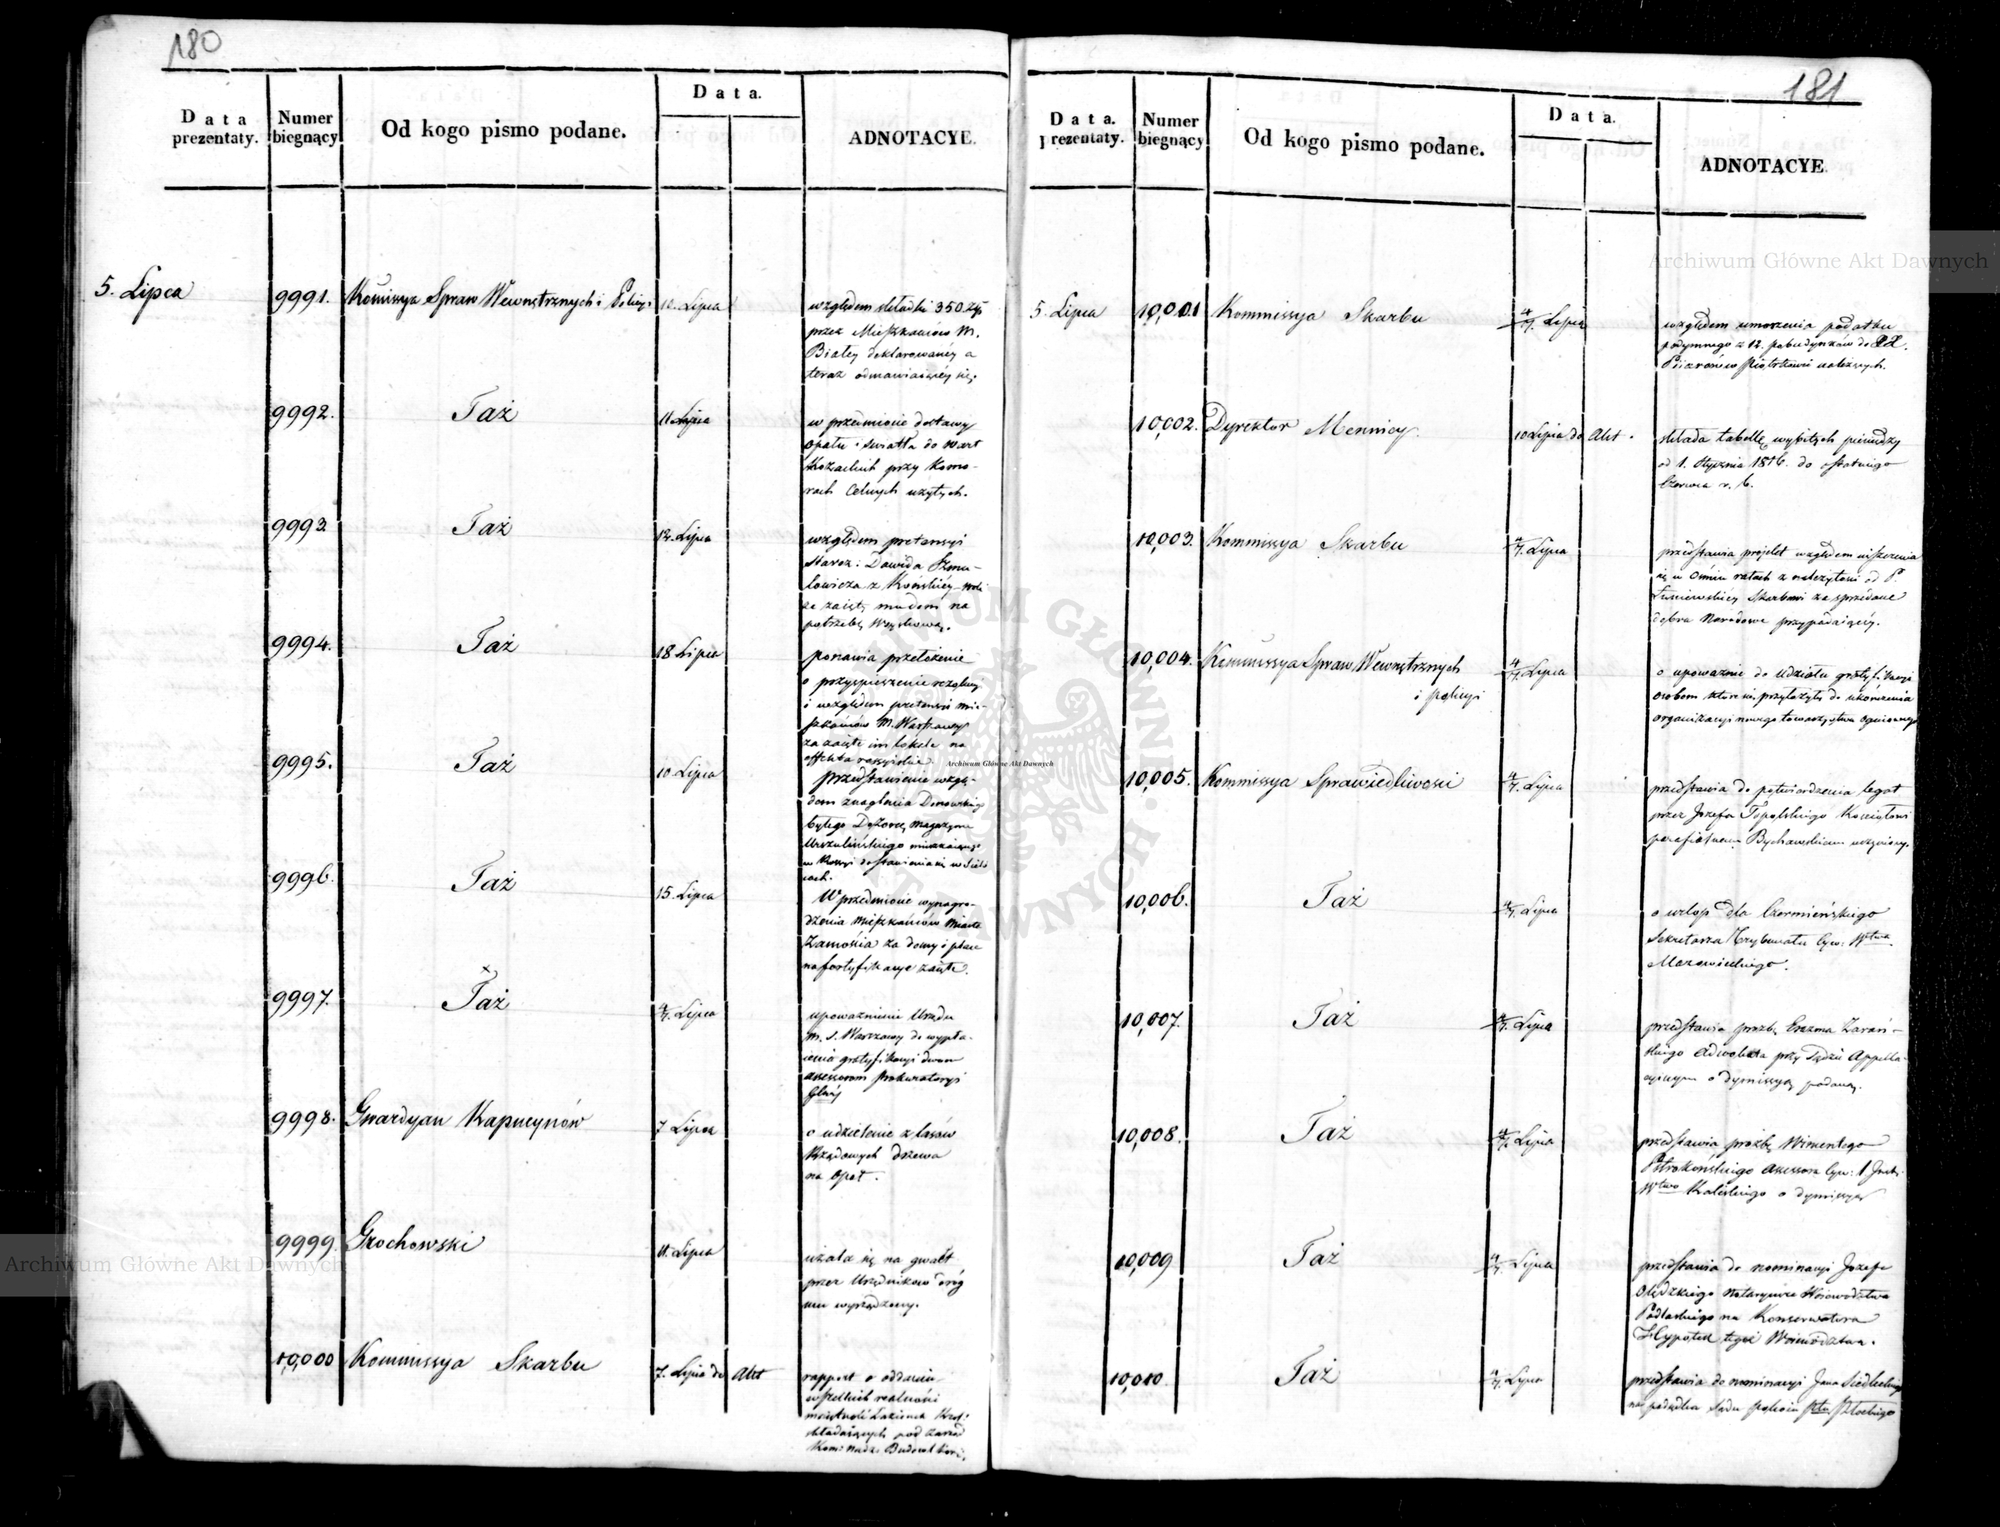 180
Data prezentaty.
Numer biegnący
Od kogo pismo podane.
Data.
ADNOTACYE.
5. Lipca
9991. Kommissya Spraw Wewnętrznych i Policyi 10. Lipca
względem składki 350 złp
przez Mieszkańców M.
Białey deklarowaney a
teraz odmawiaiącey się.
9992. Taż 11 Lipca
w przedmiocie dostawy
opału i światła do wart
Kozackich przy Komo-
rach Celnych użytych.
9993. Taż 12. Lipca
względem pretensyi
Staroz: Dawida Szmu-
lowicza z Końskiey-woli
za zaięty mu dom na
potrzebę Woyskową.
9994. Taż 18 Lipca
ponawia przełożenie
o przyspieszenie rezolucyi
względem pretensyi mie-
szkańców M. Warszawy
za zaięte im lokale na
effekta rossyiskie
9995. Taż 10. Lipca
przedstawienie wzglę-
dem znaglenia Donowskiego
byłego Dozorcy magazynu
Urszulińskiego
9996. Taż 15. Lipca
W przedmiocie wynagro-
dzenia mieszkańców miasta
Zamościa za domy i place
na fortyfikacye zaięte.
9997. Taż 4/7. Lipca
upoważnienie Urzędu
M. S. Warszawy do wypła-
cenia gratyfikacyi dwom
assessorom Prokuratoryi
9998. Gwardyan Kapucynów 7 Lipca
o udzielenie z lasów
Rządowych drzewa
na opał.
9999. Grochowski 11. Lipca
użala się na gwałt
przez Urzędników dróg
mu wyrządzony.
10,000 Kommissya Skarbu 7. Lipca do Akt
rapport o oddaniu
wszelkich realności
składaiących pod zarząd
181
Data. prezentaty.
Numer biegnący
Od kogo pismo podane.
Data.
ADNOTACYE.
5. Lipca
10,001 Kommissya Skarbu 4/7. Lipca
względem umorzenia podatku
podymnego z 12. pobudynków do XX.
Piiarów w Piotrkowie należących.
10,002. Dyrektor Mennicy. 10 Lipca do Akt.
składa tabellę wybitych pieniędzy
od 1. Stycznia 1816. do ostatniego
Czerwca r. b.
10,003. Kommissya Skarbu 4/7. Lipca
przedstawia projekt względem uiszczenia
się w ośmiu ratach z należytości od P.
Skarbowi za sprzedane
dobra Narodowe przypadaiącey.
10,004. Kommissya Spraw Wewnętrznych
i policyi
4/7. Lipca
o upoważnie do udziału gratyfikacyi
osobom które się przyłożyły do ukończenia
organizacyi nowego towarzystwa ogniowego
10,005. Kommissya Sprawiedliwosci 4/7. Lipca
przedstawia do potwierdzenia legat
przez Jozefa Topolskiego Kościołowi
parafialnemu Bychawskiemu uczyniony.
10,006. Taż 4/7. Lipca
o urlop dla Czermieńskiego
Sekretarza Trybunału Cyw: Wtwa
Mazowieckiego.
10,007. Taż 4/7. Lipca
przedstawia prozbę Erazma Zarań-
skiego Adwokata przy Sądzie Appella-
cyinym o dymissyą podaną.
10,008. Taż 4/7. Lipca
przedstawia prozbę Wincentego
Pstrokońskiego Assessora Cyw: 1 Inst.
Wtwa Kaliskiego o dymissyą
10,009 Taż 4/7. Lipca
przedstawia do nominacyi Jozefa
Olędzkiego notaryusza Woiewództwa
Podlaskiego na Konserwatora
Hypotek tegoż Woiewództwa.
10,010. Taż 4/7. Lipca
przedstawia do nominacyi Jana Siedleckiego
na podsędka Sądu pokoiu Ptu Płockiego
Archiwum Główne Akt Dawnych
Archiwum Główne Akt Dawnych
Archiwum Główne Akt Dawnych
ARCHIWUM GŁÓWNE AKT DAWNYCH